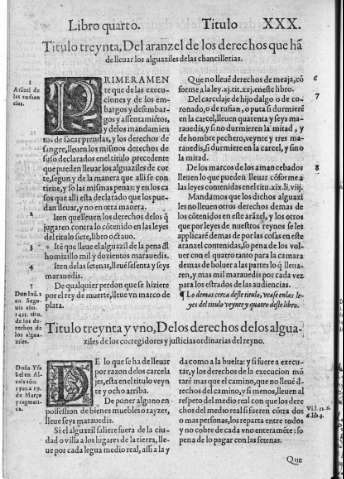 Libro quarto. Titulo XXX.
Titulo treynta, Del aranzel de los derechos que hã
de lleuar los alguaziles de las chancillerias.
PRIMERAMEN
te que de las execu-
ciones y de los em-
bargos y desembar-
gos y assentamiẽtos,
y de los mandamien
tos de sacar prendas, y los derechos de
sangre, lleuen los mismos derechos de
suso declarados en el titulo precedente
que pueden lleuar los alguaziles de cor
te, segun y de la manera que alli se con
tiene, y so las mismas penas: y en los ca
sos que alli esta declarado que los pue-
dan lleuar, y no en otra manera.
Iten que lleuen los derechos de los q̃
jugaren contra lo cõtenido en las leyes
del titulo siete, libro octauo.
3 Itẽ que lleue el alguazil de la pena dl
homizillo mil y dozientos marauedis.
4 Iten de las setenas, lleue sesenta y seys
marauedis.
5 De qualquier perdon que se hiziere
por el rey de muerte, lleue vn marco de
plata.
Que no lleue derechos de meaja, cõ 6
forme a la ley
Del carcelaje de hijo dalgo o de co- 7
ronado, o de rufian, o puta si durmiere
en la carcel, lleuen quarenta y seys ma-
rauedis, y si no durmieren la mitad, y
de hombre pechero, veynte y tres ma-
rauedis, si durmiere en la carcel, y si no
la mitad.
De los marcos de los amancebados 8
lleuen lo que pueden lleuar cõforme a
las leyes contenidas en el
Mandamos que los dichos alguazi
les no lleuen otros derechos demas de
los cõtenidos en este arãzel, y los otros
que por leyes de nuestros reynos se les
applicarẽ demas de por las cosas en este
aranzel contenidas, so pena de los vol-
uer con el quatro tanto para la camara
demas de boluer a las partes lo q̃ lleua-
ren, y mas mil marauedis por cada vez
para los estrados de las audiencias.
¶ Lo demas cerca deste titulo, vease en las le-
yes del titulo veynte y quatro deste libro.
Titulo treynta y vno, De los derechos de los algua-
ziles de los corregidores y justicias ordinarias del reyno.
DE lo que se ha de lleuar
por razon de los carcela-
jes, esta en el titulo veyn
te y ocho arriba.
De poner alguno en
possession de bienes muebles o rayzes,
lleue seys marauedis.
Si el alguazil saliere fuera de la ciu
dad o villa a los lugares de la tierra, lle-
ue por cada legua medio real, assi a la y
da como a la buelta: y si fuere a execu-
tar, y los derechos de la execucion mõ
tarẽ mas que el camino, que no lleuẽ d-
rechos del camino, y si menos, lleuen al
respeto del medio real con que los dere
chos del medio real si fueren cõtra dos
o mas personas, los reparta entre todos
y no cobre de cada vno enteramẽte: so
pena de lo pagar con las setenas.
Que